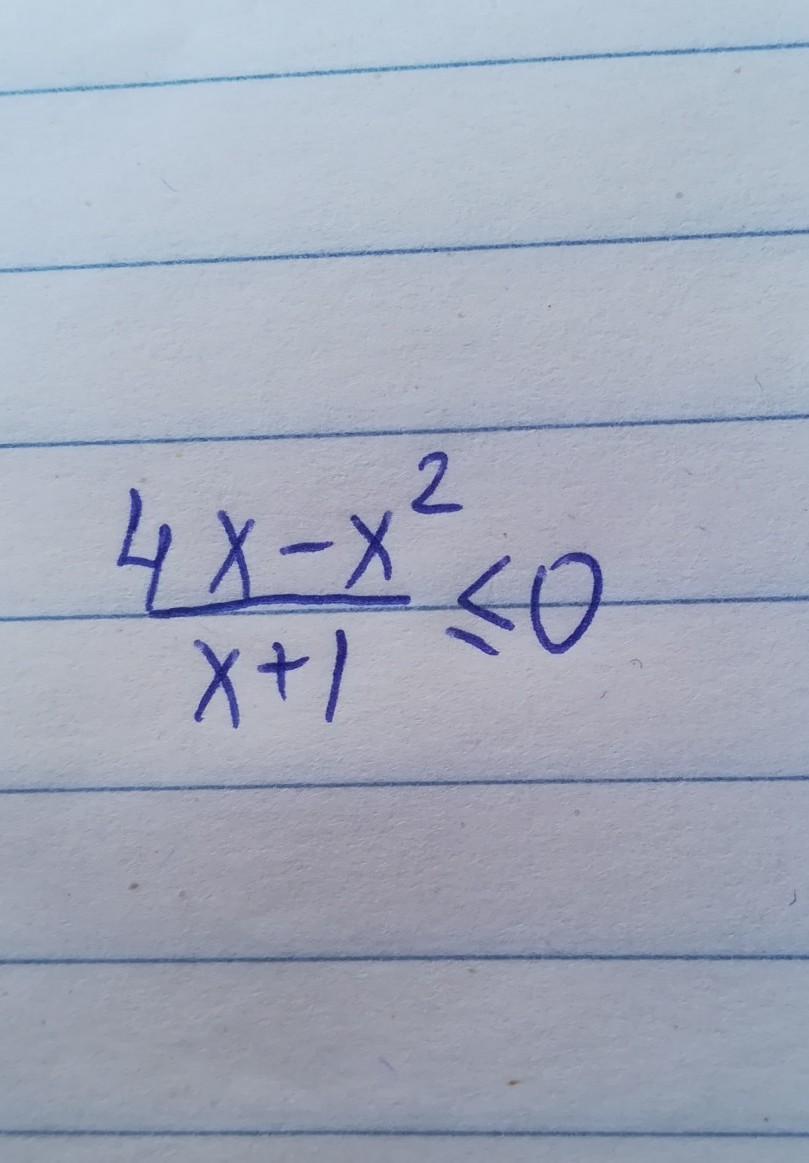 4x-x²
x+1 ≤0